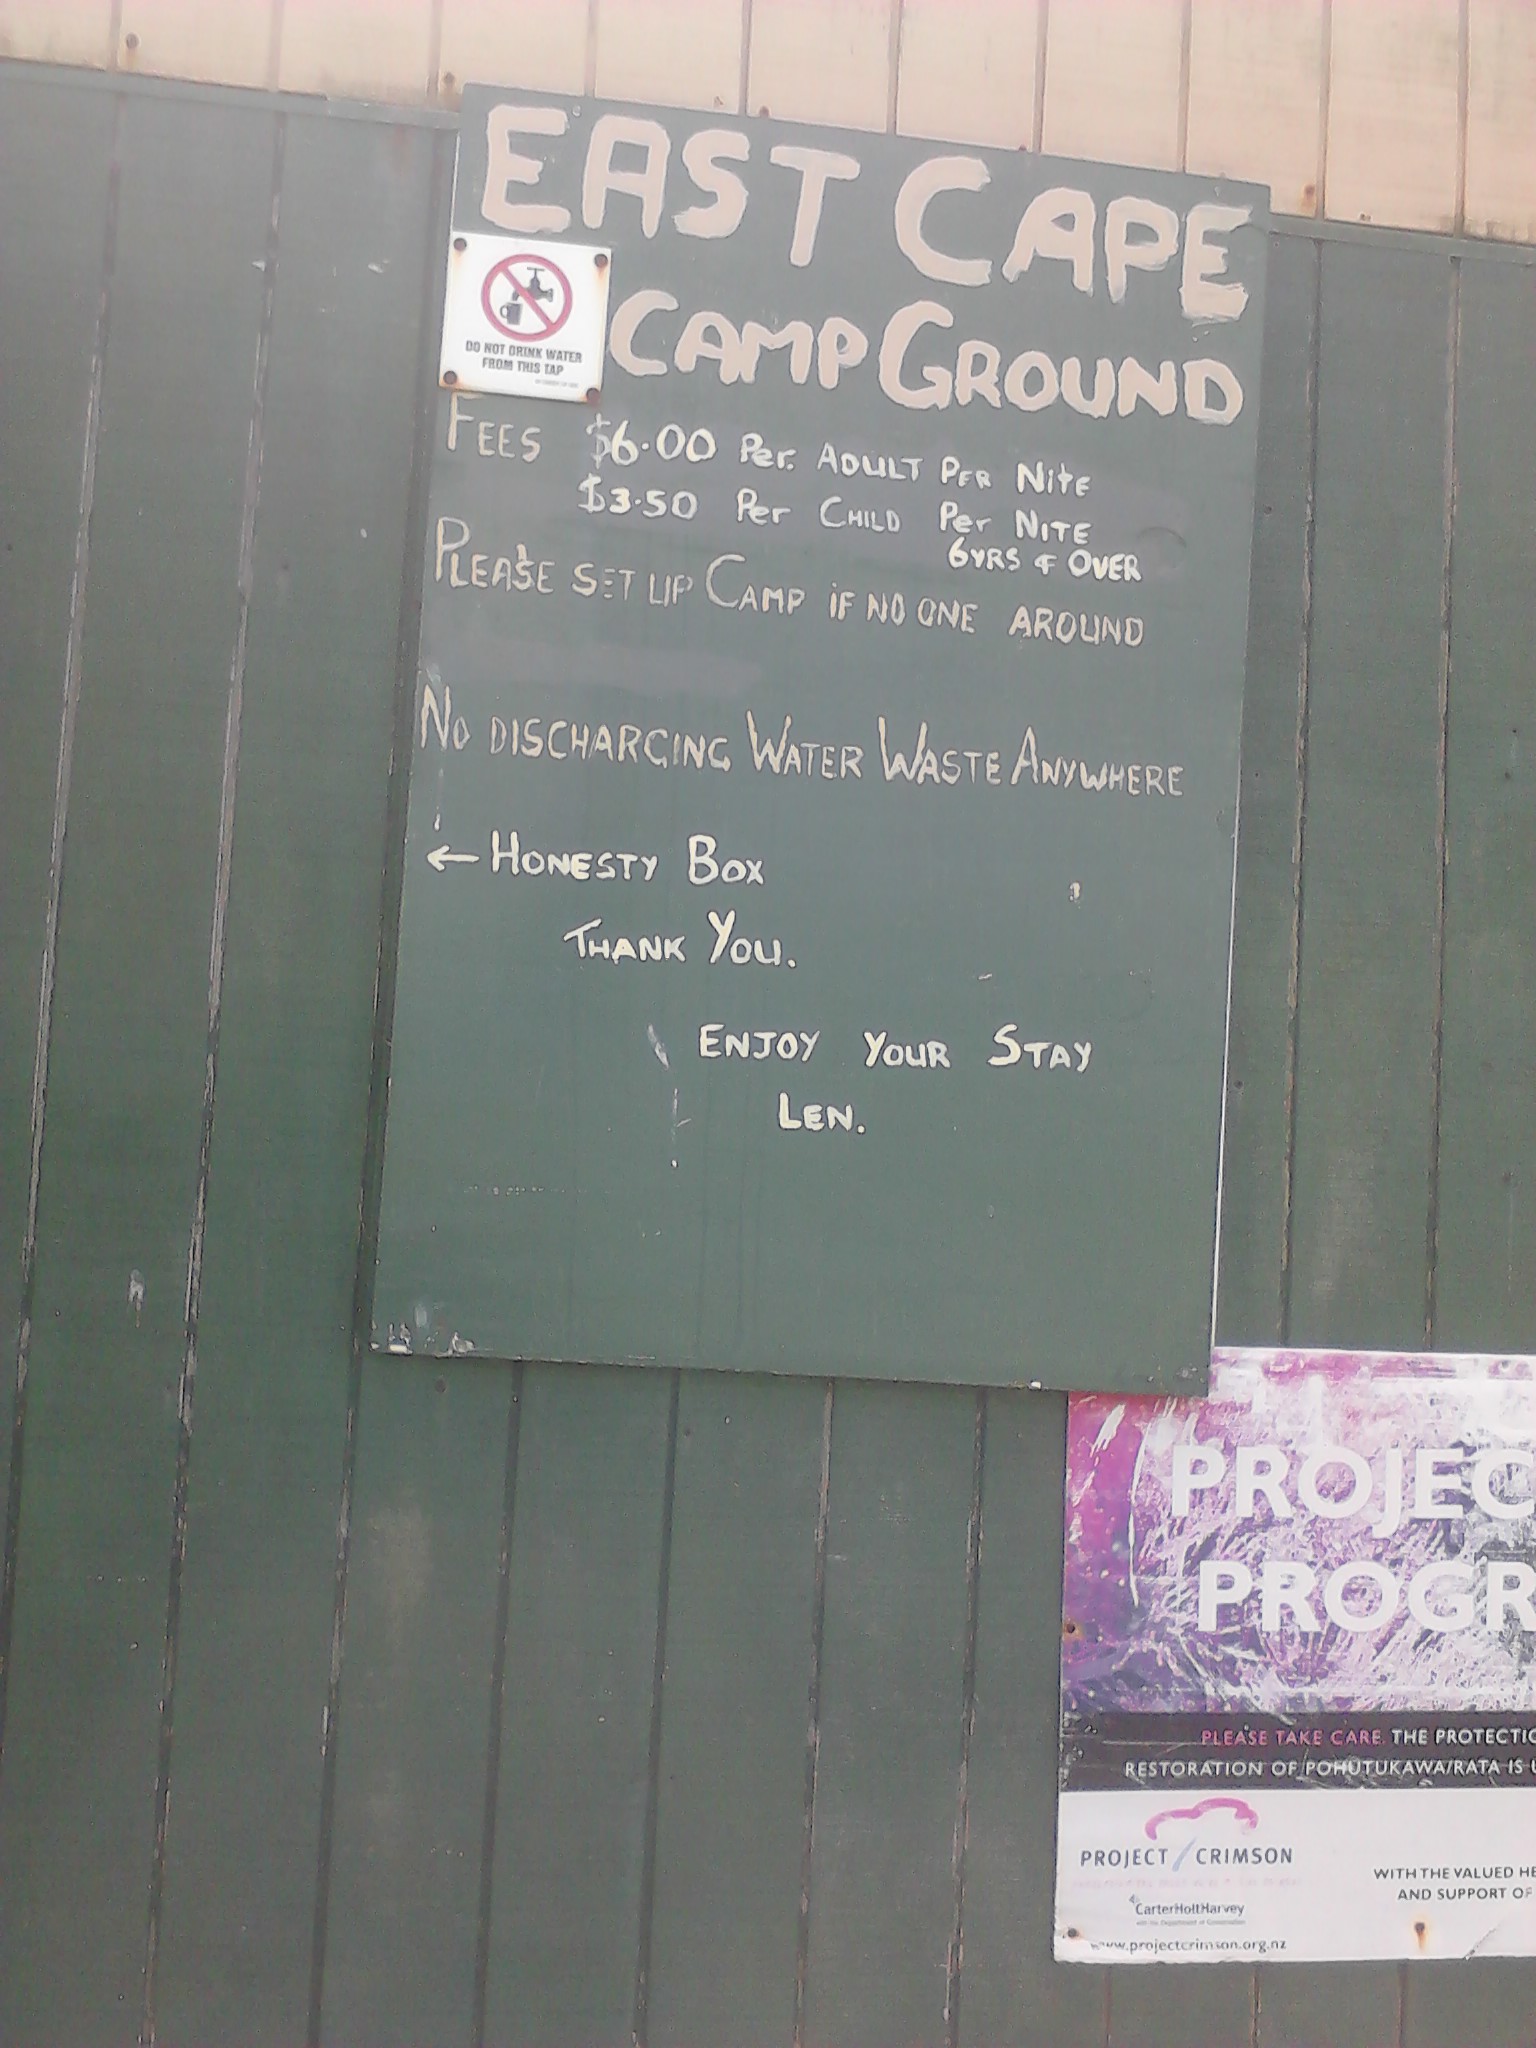 EAST CAPE
CAMPGROUND
DO NOT DRINK WATER
FROM THIS TAP
FEES $6.00 Per. ADULT PER NitE
$3.50 Per CHILD Per NITE
6YRS & OVER
PLEASE SET UP CAMP iF NO ONE AROUND
NO DISCHARGING WATER WASTE ANYWHERE
← HONESTY BOX
THANK YOU.
ENJOY YOUR STAY
LEN.
PROJEC
PROGR
PLEASE TAKE CARE. THE PROTECTIO
RESTORATION OF POHUTUKAWA/RATA IS U
PROJECT CRIMSON
CarterHoltHarvey
with the Department of Conservation
www.projectcrimson.org.nz
WITH THE VALUED HE
AND SUPPORT OF